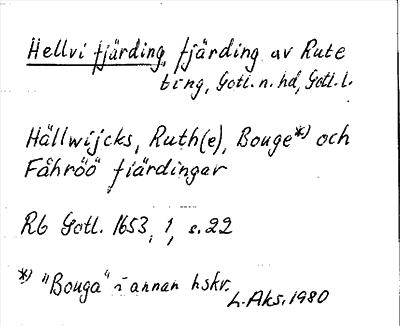 Hellvi fjärding, fjärding av Rute
ting, Gotl. n. hd, Gotl. l.
Hällwijcks, Ruth(e), Bouge*) och
Fåhröö fiärdingar
Rb Gotl. 1653, 1, s. 22
*) "Bouga" i annan hskr.
L. Aks. 1980